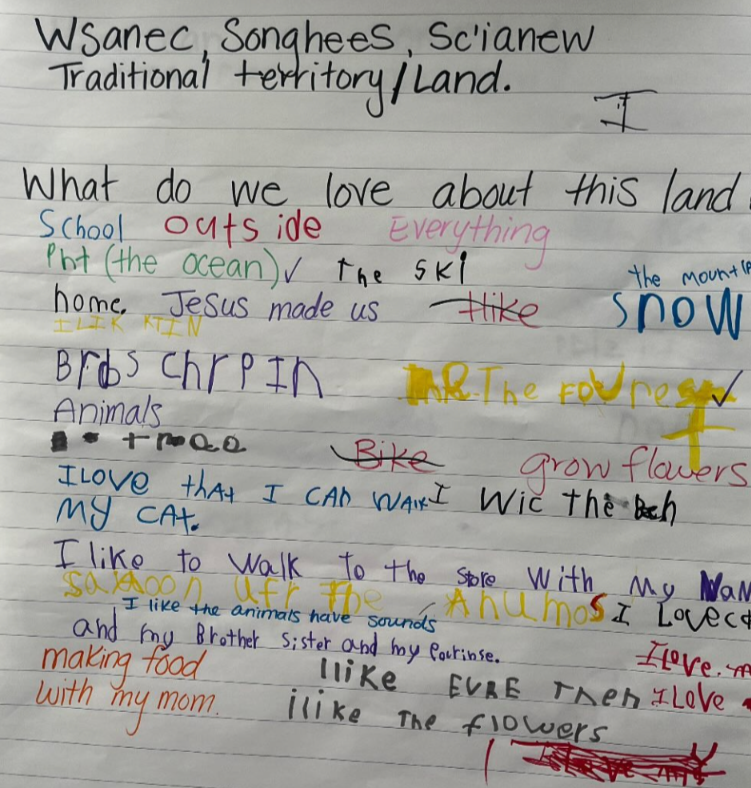 Wsanec, Songhees, Sc'ianew
Traditional territory/Land.
I
What do we love about this land
School outside Everything
Pht (the ocean) ✓ The SKi
the mount
home. Jesus made us Hike snow
I LIK KTIN
Brbs chrPIn The FoUrest ✓
Animals
Bike grow flowers
I LOVE thAt I CAn WAlk I Wic the Bch
MY CAt.
I like to Walk to the store With My NaN
SaKoon UFr The Anumos I Love
I like the animals have sounds
and my Brother Sister and my Courinse.
I Love. m
making food Ilike EVRE Then I LOVe
with my mom. ilike The flowers